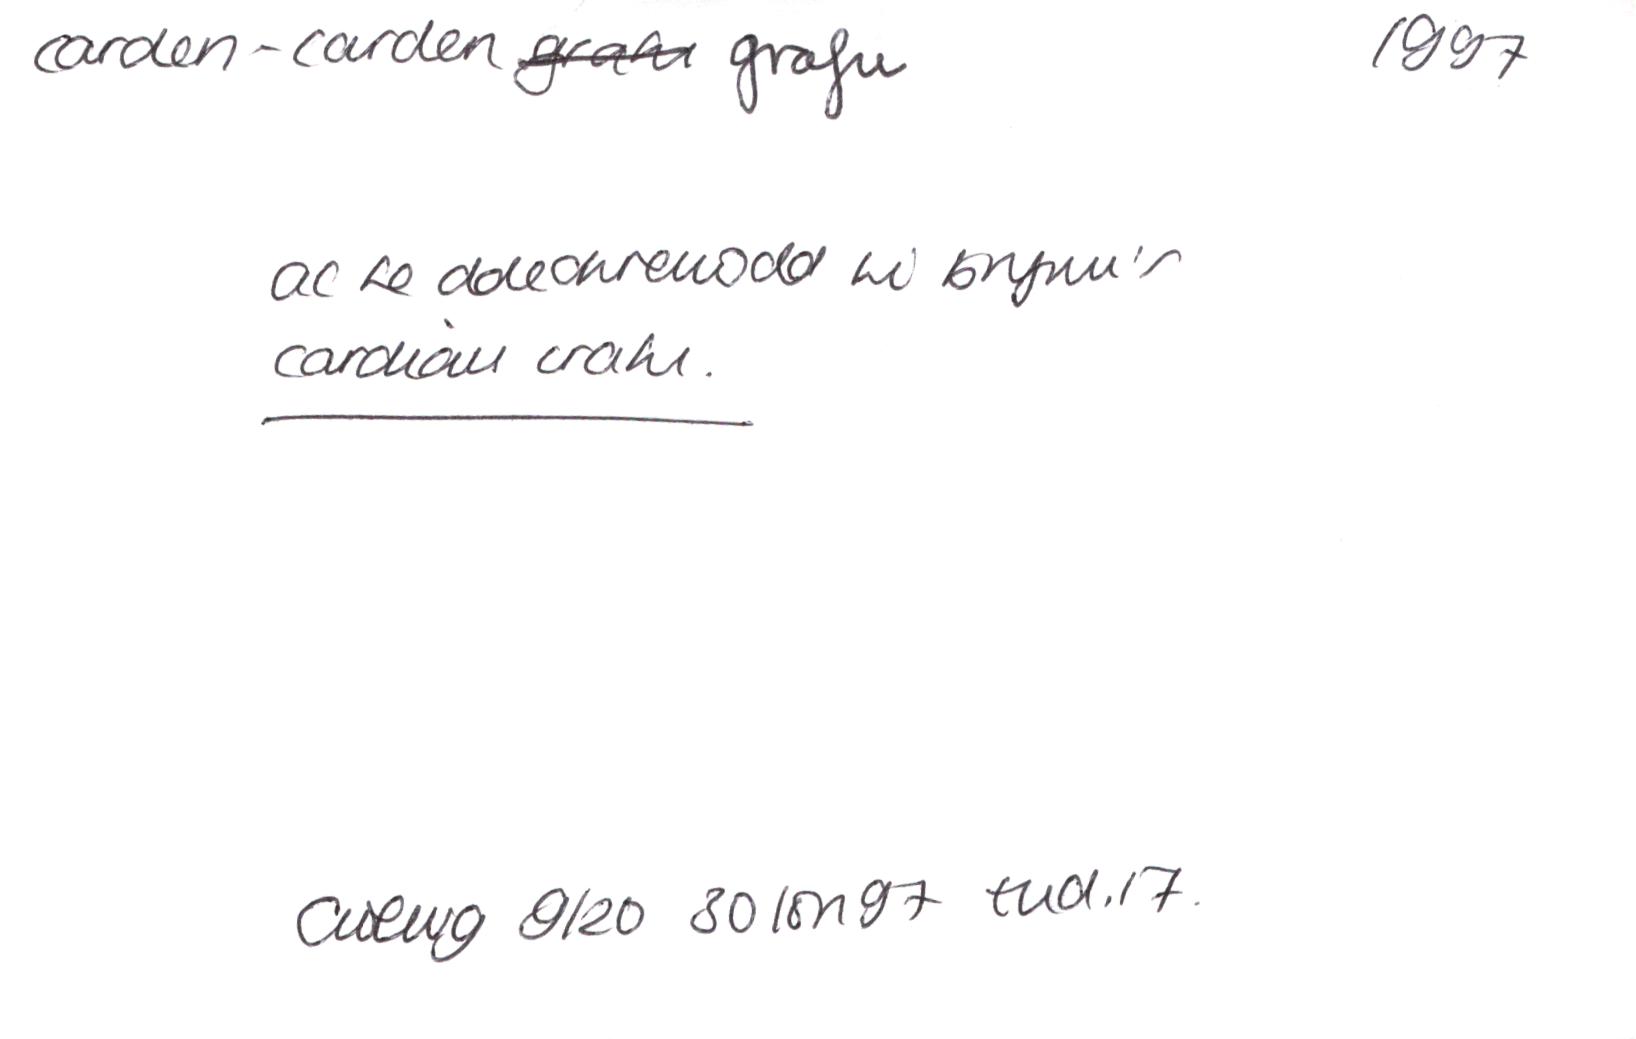 carden - carden grafu 1997
ac fe ddechreuodd hi brynu'r
cardiau crafu.
Golwg 9/20 30 Ion 97 tud. 17.